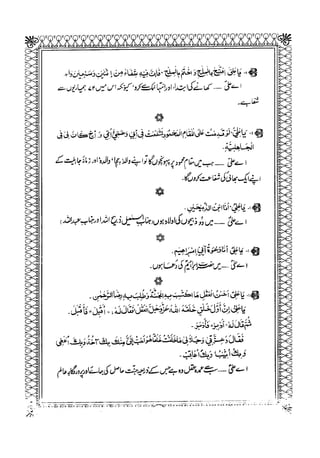 یَا عَلِیُّ، اِفْتَحْ بِالْمِلْحِ وَاخْتِمْ بِالْمِلْحِ، فَاِنَّ فِیْهِ شِفَاءً مِّنْ اِثْنَیْنِ وَسَبْعِیْنَ دَاءً۔
اے علیؑ ..... کھانے کی ابتداء اور انتہا نمک سے کرو کیونکہ اس میں ۷۲ بیماریوں سے
شفا ہے۔
یَا عَلِیُّ، لَوْ قَدِمْتُ عَلَی الْمَقَامِ الْمَحْمُوْدِ شَفَعْتُ فِیْ اَبِیْ وَعَمِّیْ وَاُمِّیْ وَاَخٍ کَانَ لِیْ فِی
الْجَاهِلِیَّةِ۔
اے علیؑ ..... جب میں مقام محمود پر پہونچوں گا تو اپنے والد، چچا، والدہ اور زمانۂ جاہلیت کے
اپنے ایک بھائی کی شفاعت کروں گا۔
یَا عَلِیُّ، اَنَا ابْنُ الذَّبِیْحَیْنِ۔
اے علیؑ ..... میں دو ذبیحوں کی اولاد ہوں، (جناب اسمٰعیل ذبیح اللہ اور جناب عبداللہ)
یَا عَلِیُّ، اَنَا دَعْوَةُ اَبِیْ اِبْرَاهِیْمَ۔
اے علیؑ ..... میں حضرت ابراہیمؑ کی دعا ہوں۔
یَا عَلِیُّ، اَحْسَنُ الْعَقْلِ مَا اکْتُسِبَ بِهِ الْجَنَّةُ وَطُلِبَ بِهِ رِضَا الرَّحْمٰنِ۔
یَا عَلِیُّ، اِنَّ اَوَّلَ خَلْقٍ خَلَقَهُ اللهُ عَزَّوَجَلَّ الْعَقْلُ، فَقَالَ لَهُ، اَقْبِلْ، فَاَقْبَلَ۔
ثُمَّ قَالَ لَهُ، اَدْبِرْ، فَاَدْبَرَ۔
فَقَالَ وَعِزَّتِیْ وَجَلَالِیْ مَا خَلَقْتُ خَلْقًا هُوَ اَحَبُّ اِلَیَّ مِنْكَ، بِكَ اٰخُذُ وَبِكَ اُعْطِیْ
وَبِكَ اُثِیْبُ وَبِكَ اُعَاقِبُ۔
اے علیؑ ..... سب سے عمدہ عقل وہ ہے جس کے ذریعہ جنت حاصل کی جائے اور پروردگار عالم